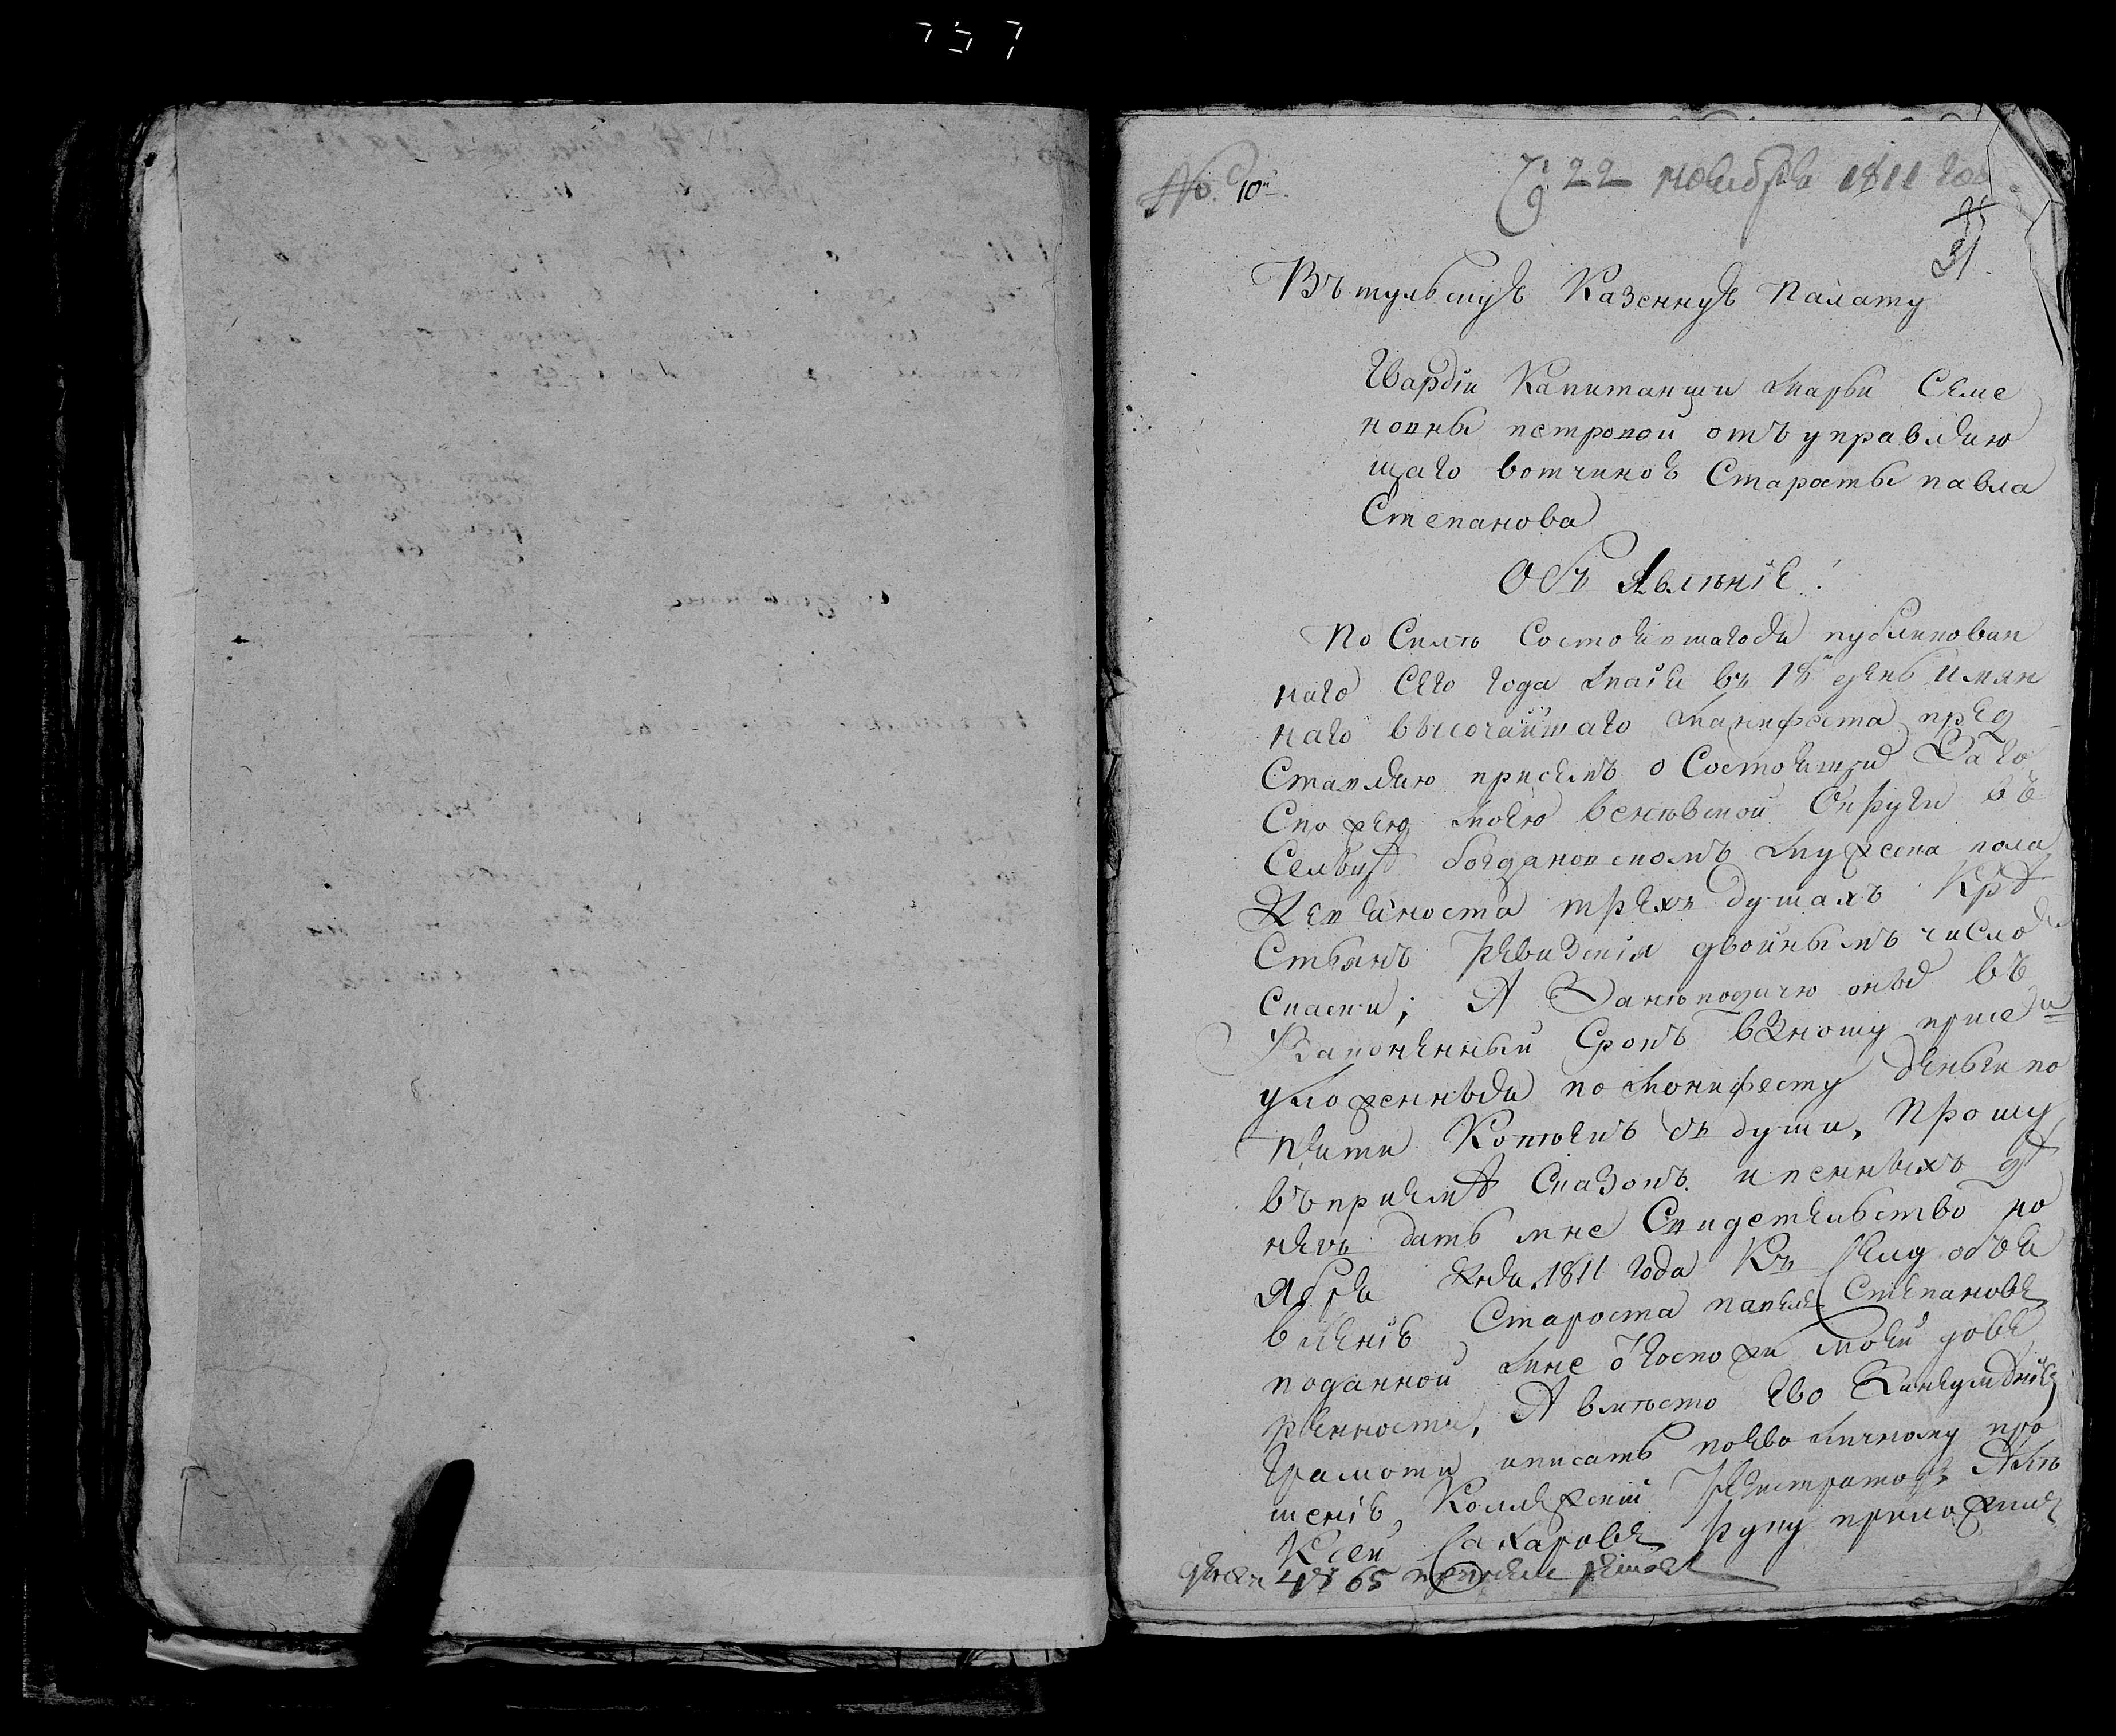 No. 10й
22 ноября 1811 года
31.
Въ тульскую Казенную Палату
Гвардіи Капитанши марьи Семе
новны петровой отъ управляю
щаго вотчиною Старосты павла
Степанова
Объ явленіе!
По Силѣ Состоявшагося публикован
наго Сего года маія въ 18й день Имян
наго высочайшаго манифеста пред
Ставляю присемъ о Состоящих За Го
Спожею моею веневской Округи въ
Сельце богдановскомъ мужеска пола
трехъ душахъ Кре
Стьянъ Ревизскія двойнымъ числом
Скаски; А За неподачю оных въ
Законенный Срокъ
уложенныя по манифесту деньги по
Копеекъ съ души, Прошу
въ приеме Сказокъ и пенныхъ де
негъ дать мне Свидетельство но
ября дня 1811 года Къ Сему объя
вленію Староста павелъ Степановъ
поданной мне отъ госпожи моей дове
ренности, А вместо Ево Занеумениемъ
Грамоти писать поево личному про
шенію, Коллежский Регистраторъ Але
Ксей Сахаровъ Руку приложилъ
65